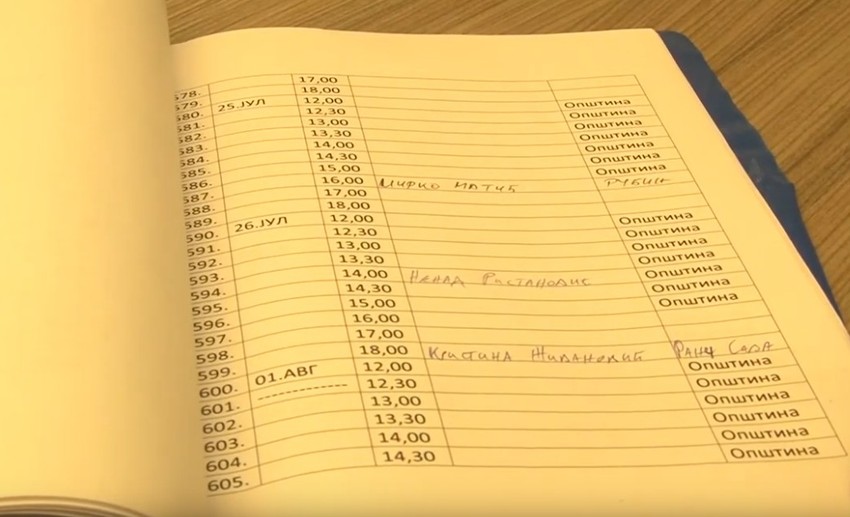 17,00
578. 18,00
579. 25.ЈУЛ 12,00 Општина
580. 12,30 Општина
581. 13,00 Општина
582. 13,30 Општина
583. 14,00 Општина
584. 14,30 Општина
585. 15,00 Општина
586. 16,00 Мирко Матић Рубин
587. 17,00
588. 18,00
589. 26.ЈУЛ 12,00 Општина
590. 12,30 Општина
591. 13,00 Општина
592. 13,30 Општина
593. 14,00 Ненад Општина
594. 14,30 Општина
595. 15,00 Општина
596. 16,00
597. 17,00
598. 18,00 Кристина Сала
599. 01.АВГ 12,00 Општина
600. -------------- 12,30 Општина
601. 13,00 Општина
602. 13,30 Општина
603. 14,00 Општина
604. 14,30 Општина
605.